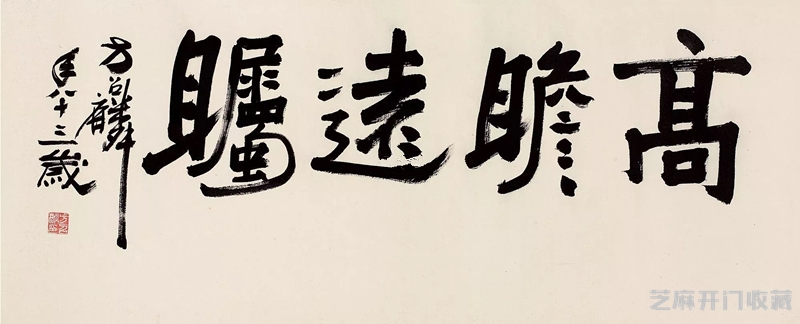 高瞻遠矚
方召麟
年八十三歲
芝麻开门收藏